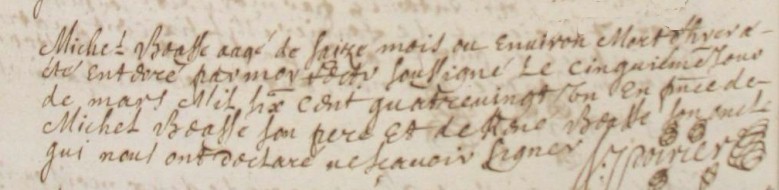 Michel Beasse aagé de saize mois ou environ Mort hyer a
été enterré par moy soussigné Le cinquième Jour
de mars Mil six cent quatrevingt un En pnce de
Michel Beasse son pere Et de René Beasse son oncle
qui nous ont déclaré ne scavoir signer Poirier